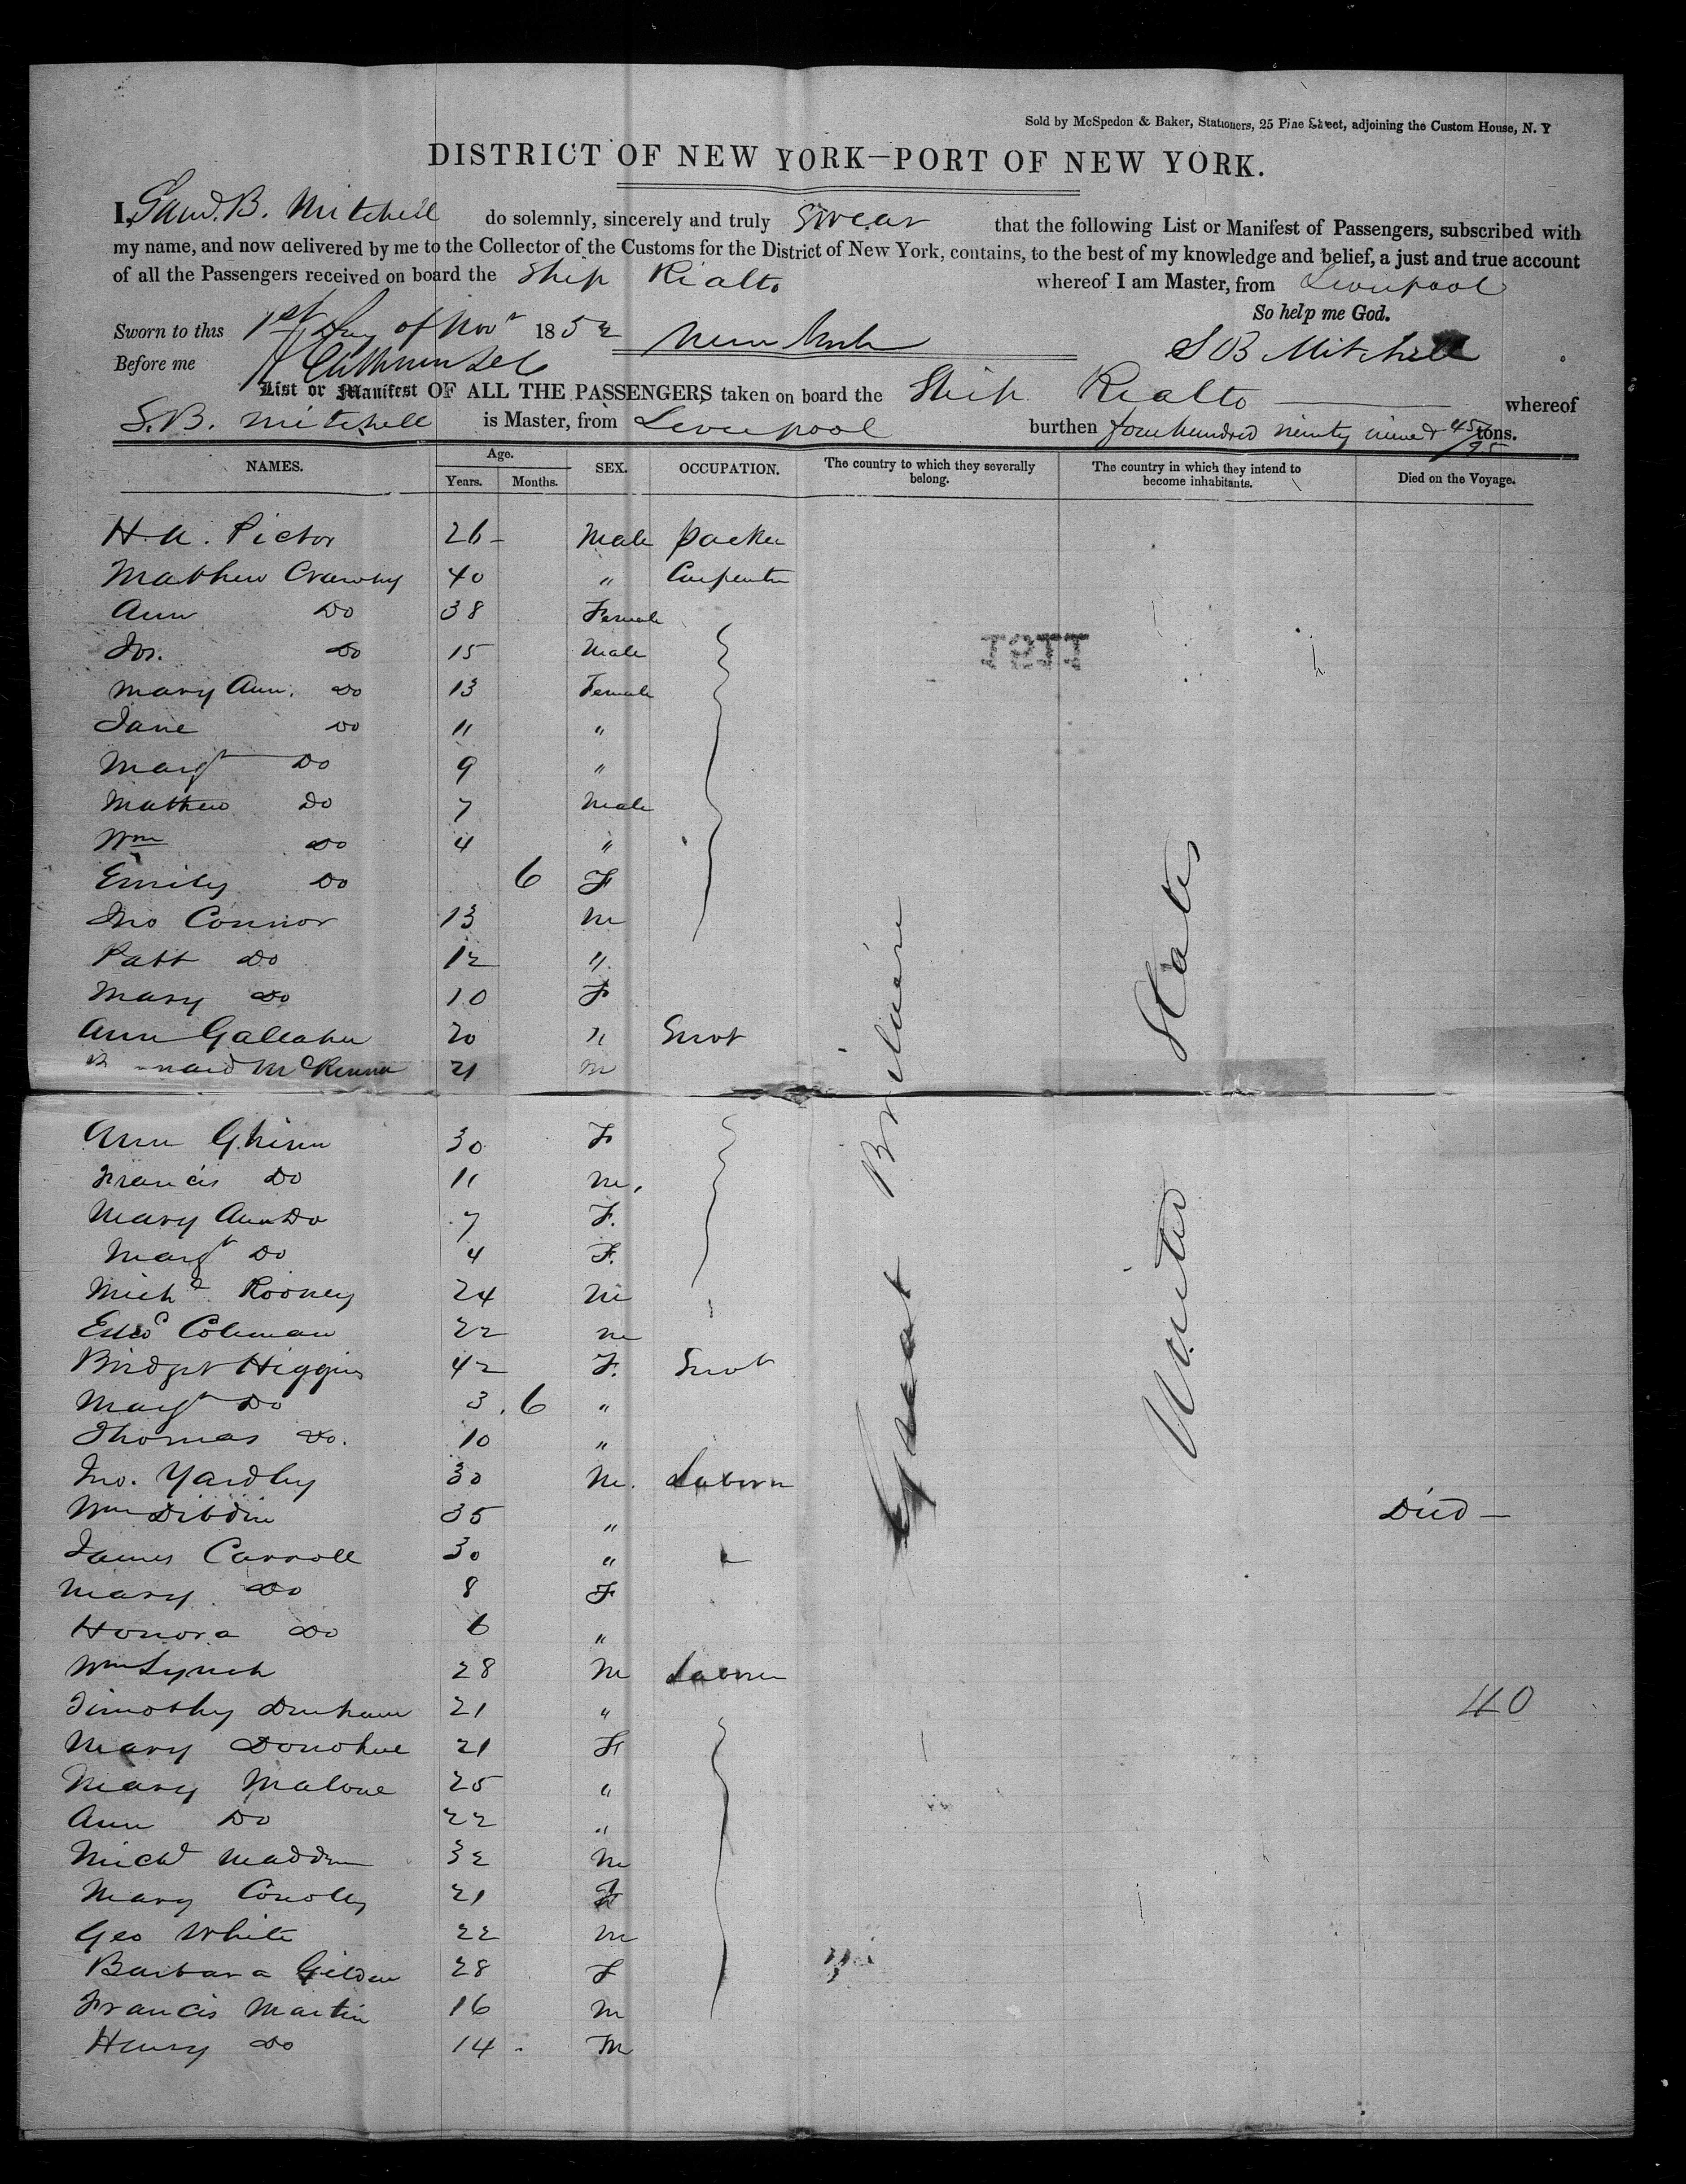 Sold by McSpedon & Baker, Stationers, 25 Pine Street, adjoining the Custom House, N. Y
DISTRICT OF NEW YORK—PORT OF NEW YORK.
I, Saml. B. Mitchell do solemnly, sincerely and truly swear that the following List or Manifest of Passengers, subscribed with
my name, and now delivered by me to the Collector of the Customs for the District of New York, contains, to the best of my knowledge and belief, a just and true account
of all the Passengers received on board the Ship Rialto whereof I am Master, from Liverpool
So help me God.
Sworn to this 1st Day of Novr 1852 New York S B Mitchell
Before me
List or Manifest OF ALL THE PASSENGERS taken on board the Ship Rialto whereof
S. B. Mitchell is Master, from Liverpool burthen four hundred ninety nine & 45/95 tons.
NAMES. Age. Years. Months. SEX. OCCUPATION. The country to which they severally belong. The country in which they intend to become inhabitants. Died on the Voyage.
H. A. Pictor 26 Male packer
Mathew Crawley 40 " Carpenter
Ann Do 38 Female
Jos. Do 15 Male
Mary Ann. Do 13 Female
Jane Do 11 "
Margt Do 9 "
Mathew Do 7 Male
Wm Do 4 "
Emily Do 6 F
Jno Connor 13 M
Patt Do 12 "
Mary Do 10 F
Ann Gallaher 20 " Servt
McKenna 21 M
Ann Ghinn 30 F
Francis Do 11 M.
Mary Ann Do 7 F.
Margt Do 4 F.
Michl Rooney 24 M
Coleman 22 M
Bridget Higgins 42 F. Servt
Margt Do 3 6 "
Thomas Do. 10 "
Jno. Yardley 30 M. Laborer
Wm Dibdin 35 " Died —
James Carroll 30 " "
Mary Do 8 F
Honora Do 6 "
Wm Lynch 28 M Laborer
Timothy Denham 21 "
40
Mary Donohue 21 F
Mary Malone 25 "
Ann Do 22 "
Michl Madden 32 M
Mary Conolly 21 F
Geo White 22 M
Barbara Gilden 28 F
Francis Martin 16 M
Henry Do 14 M
Great Britain
United States